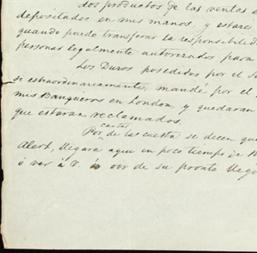 dos productos de las ventas
depositados en mis manos y estare
quando puedo transferir la responsibilid
personas legalmente autorizadas para
Los Duros poseidos por el
estraordinariamente, mandé por el
mis Banqueros en London y quedaran
que estaran reclamados.
cartas
Por de las cuesta se decen que
Alert, llegara aqui en poco tiempo de
ó ver á V. ó oir de su pronto lleg